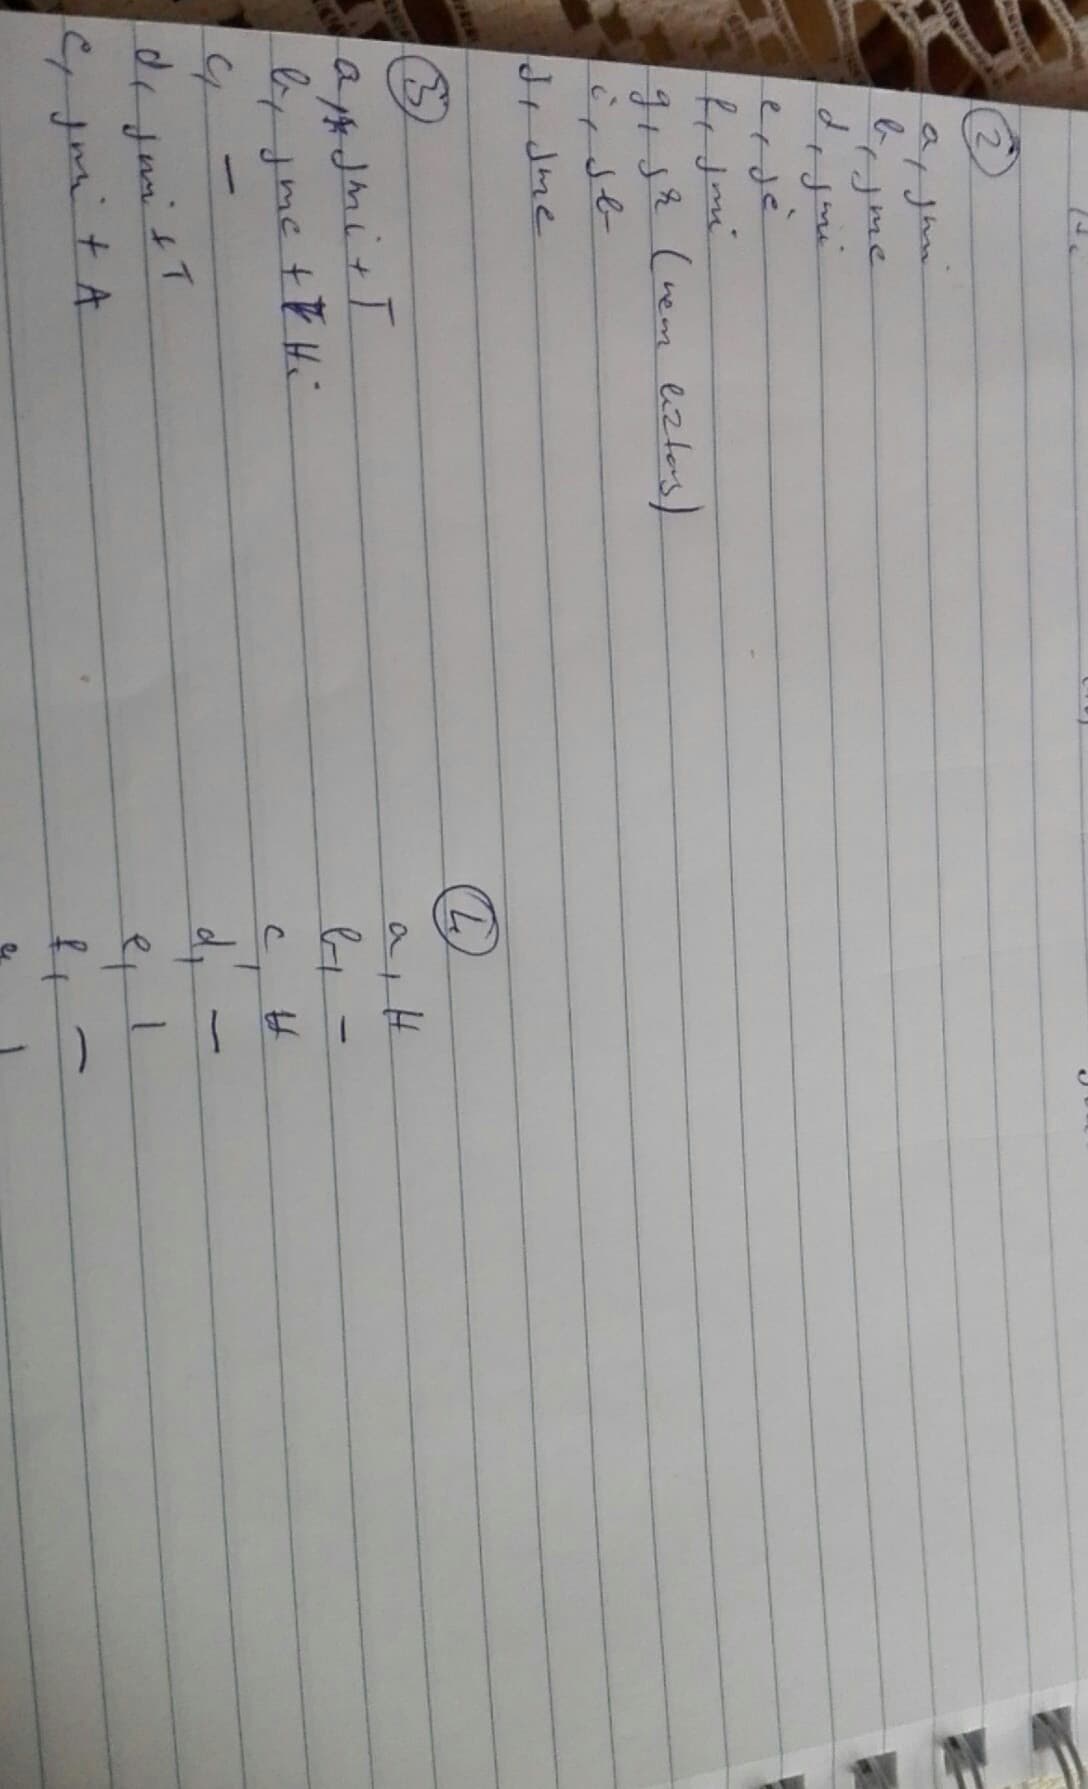 ②
a, jmi
b, jme
d, jmi
e, jé
f, jmi
g, jr (nem biztos)
i, jb
j, jme
③
a, jmi + T
b, jme + Hi
c, –
d, jmi + T
e, jmi + A
④
a, H
b, –
c, H
d, –
e, I
f, –